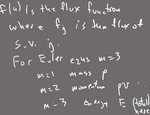 f(u) is the flux function
where fj is the flux of
s.v. j.
For Euler eqns m=3
m=1 mass ρ
m=2 momentum ρv
m=3 energy E (total
here